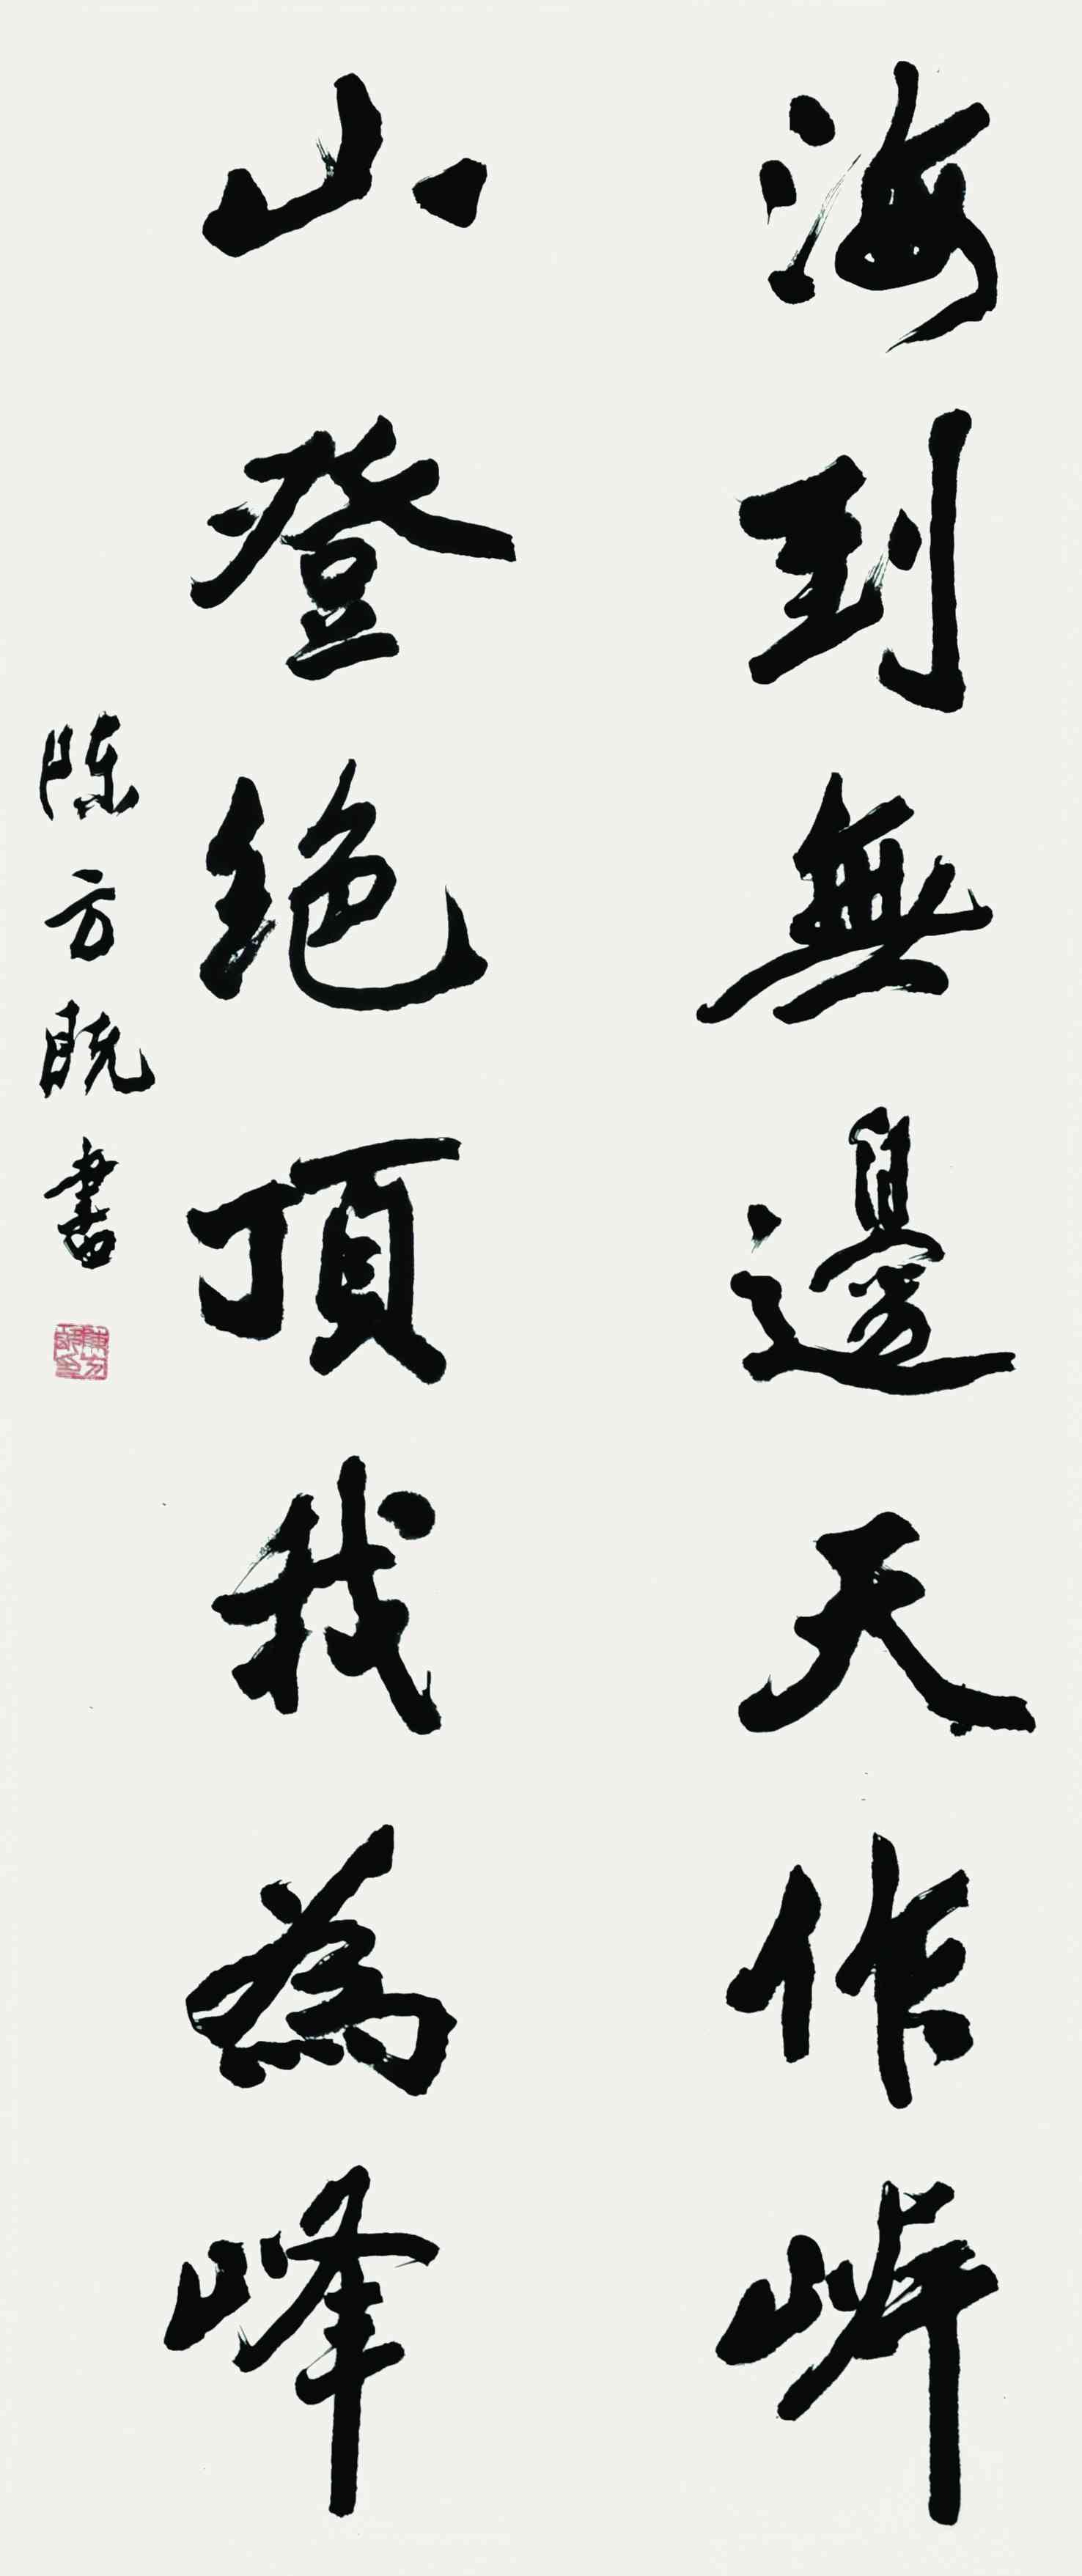 海到無邊天作岸
山登绝頂我為峰
陈方既書